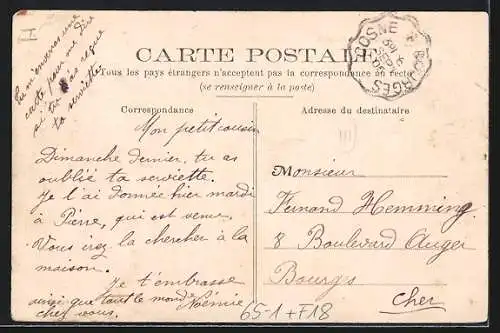 Tu m'enverras une
carte pour me dire
si tu as reçue
ta serviette
CARTE POSTALE
Tous les pays étrangers n'acceptent pas la correspondance au recto
(se renseigner à la poste)
COSNE
BOURGES
Correspondance
Mon petit cousin
Dimanche dernier, tu as
oublié ta serviette.
Je l'ai donnée hier mardi
à Pierre, qui est venu.
Vous irez la chercher à la
maison.
Je t'embrasse
ainsi que tout le monde
chez vous.
Noémie
Adresse du destinataire
Monsieur
Fernand Hemming
8 Boulevard Auger
Bourges
Cher
651+F18